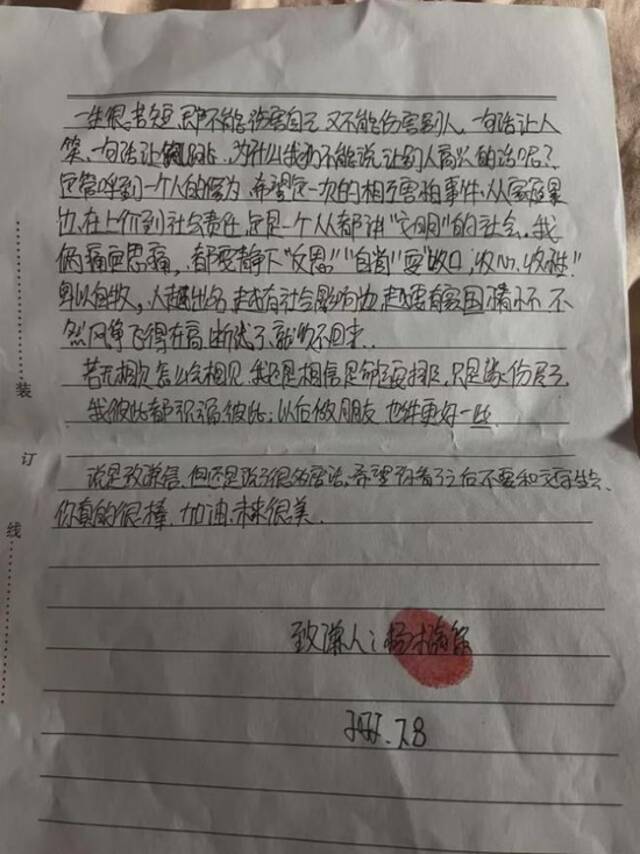 一生很苦短,即不能伤害自己 又不能伤害别人,一句话让人
笑,一句话让人跳,为什么我们不能说让别人高兴的话呢?
这管呼到一个人的修为,希望这一次的相互害怕事件,从家庭
在上价到社会责任,这是一个人人都讲"文明"的社会。我
俩痛定思痛,都要静下"反思""自省"要"收口,收心,收性"
卑以自牧,人越出名,越有社会影响力,越要有家国情怀,不
然风筝飞得在高,断线了,就收不回来..
若无相欠怎么会相见,我还是相信是的,只是缘份尽了
我彼此都祝福彼此;以后做朋友 也许更好一些
说是致谦信,但还是说了很多废话,希望你看了之后不要和文字生气
你真的很棒,加油,未来很美.
致谦人:
7.8
装
订
线